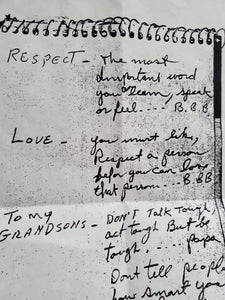 RESPECT - The most
important word
you learn, speak
or feel.... B.B.B
LOVE - you must like,
Respect a person
befor you can love
that person... B.B.B
TO MY
GRANDSONS - DON'T TALK TOUGH,
act tough But be
tough.... Papa
Dont tell people
how smart you